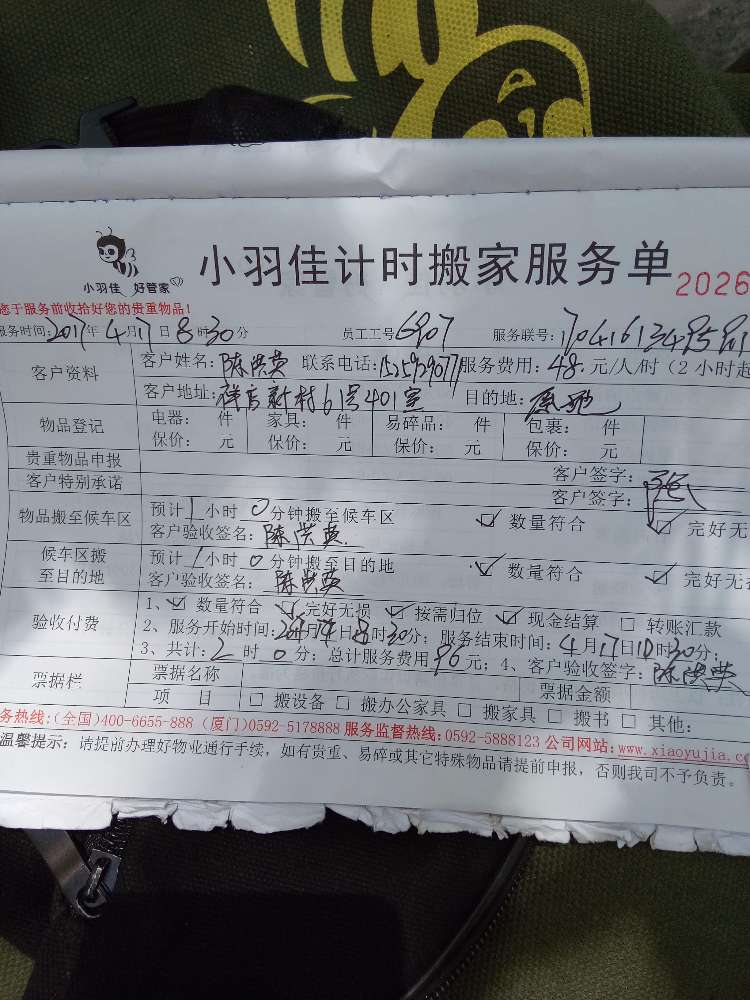 小羽佳 好管家
小羽佳计时搬家服务单 2026
您于服务前收拾好您的贵重物品!
服务时间: 2017年 4月17日 8时30分 员工工号 6907 服务联号:
客户资料 客户姓名: 陈洪英 联系电话: 服务费用: 48 元/人/时 (2小时起
客户地址: 祥店新村61号401室 目的地: 原地
物品登记 电器: 件 家具: 件 易碎品: 件 包裹: 件
保价: 元 保价: 元 保价: 元 保价: 元
贵重物品申报 客户签字:
客户特别承诺 客户签字:
物品搬至候车区 预计1小时0分钟搬至候车区 ☑ 数量符合 ☑ 完好无
客户验收签名: 陈洪英
候车区搬至目的地 预计1小时0分钟搬至目的地 ☑ 数量符合 ☑ 完好无
客户验收签名: 陈洪英
验收付费 1、☑ 数量符合 ☑ 完好无损 ☑ 按需归位 ☑ 现金结算 □ 转账汇款
2、服务开始时间: 月 日8时30分; 服务结束时间: 4月17日10时30分;
3、共计: 2时0分; 总计服务费用96元; 4、客户验收签字: 陈洪英
票据栏 票据名称 票据金额
项 目 □ 搬设备 □ 搬办公家具 □ 搬家具 □ 搬书 □ 其他:
务热线:(全国)400-6655-888 (厦门)0592-5178888 服务监督热线:0592-5888123 公司网站:www.xiaoyujia.co
温馨提示: 请提前办理好物业通行手续, 如有贵重、易碎或其它特殊物品请提前申报, 否则我司不予负责。